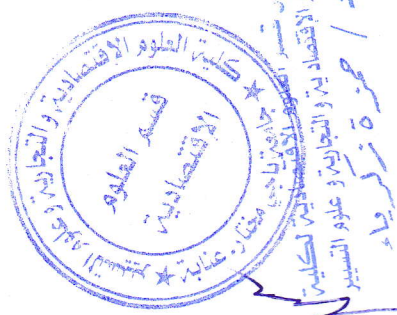 كلية العلوم الاقتصادية و التجارية وعلوم التسيير
جامعة باجي مختار عنابة
قسم العلوم
الاقتصادية
قسم العلوم الاقتصادية لكلية
الاقتصادية و التجارية و علوم التسيير